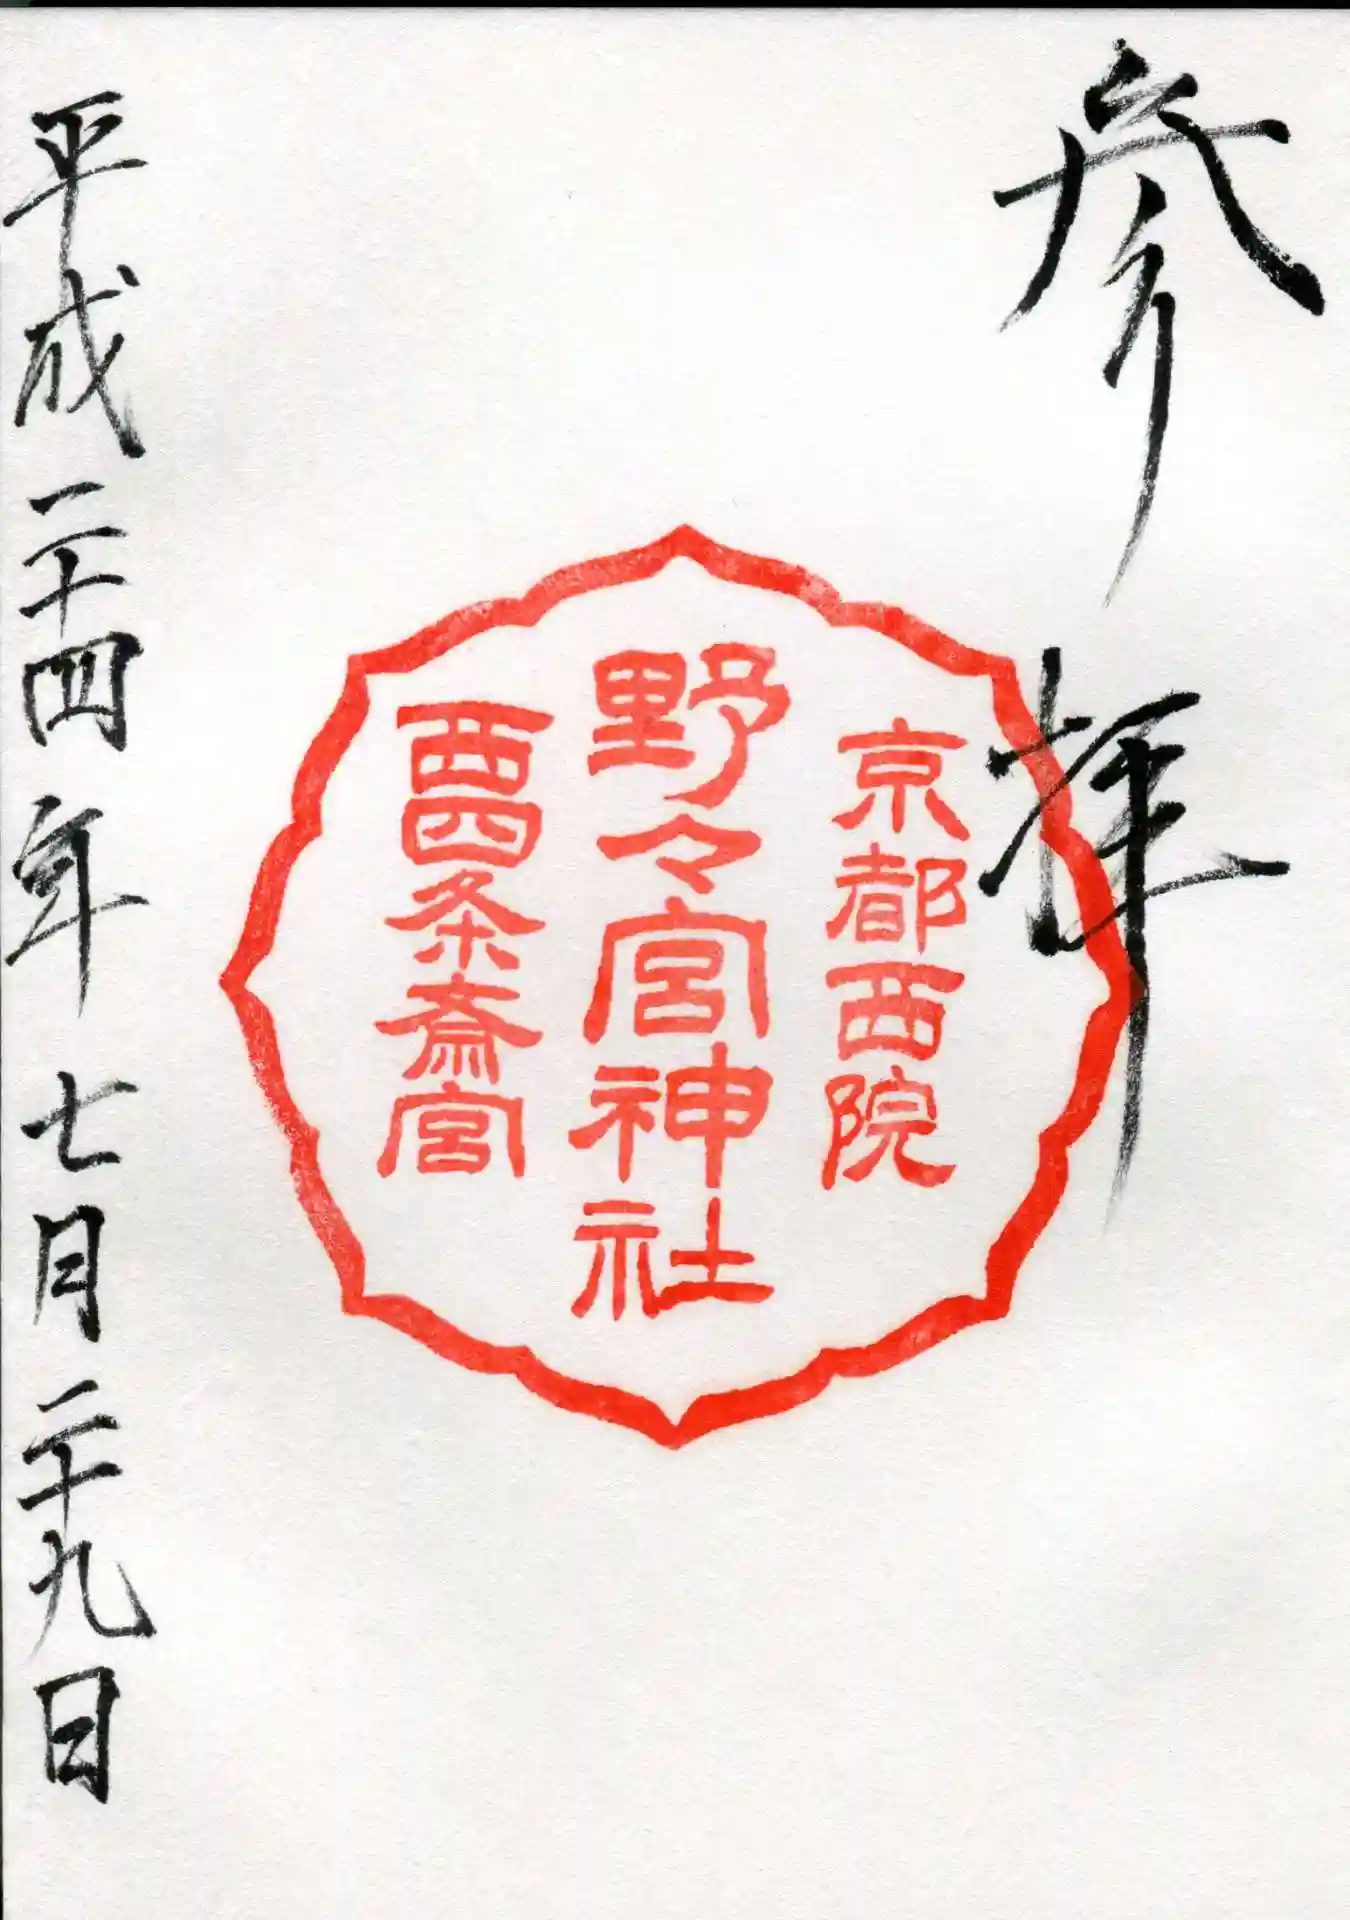 参拝
京都西院
野々宮神社
西四条斎宮
平成二十四年七月二十九日